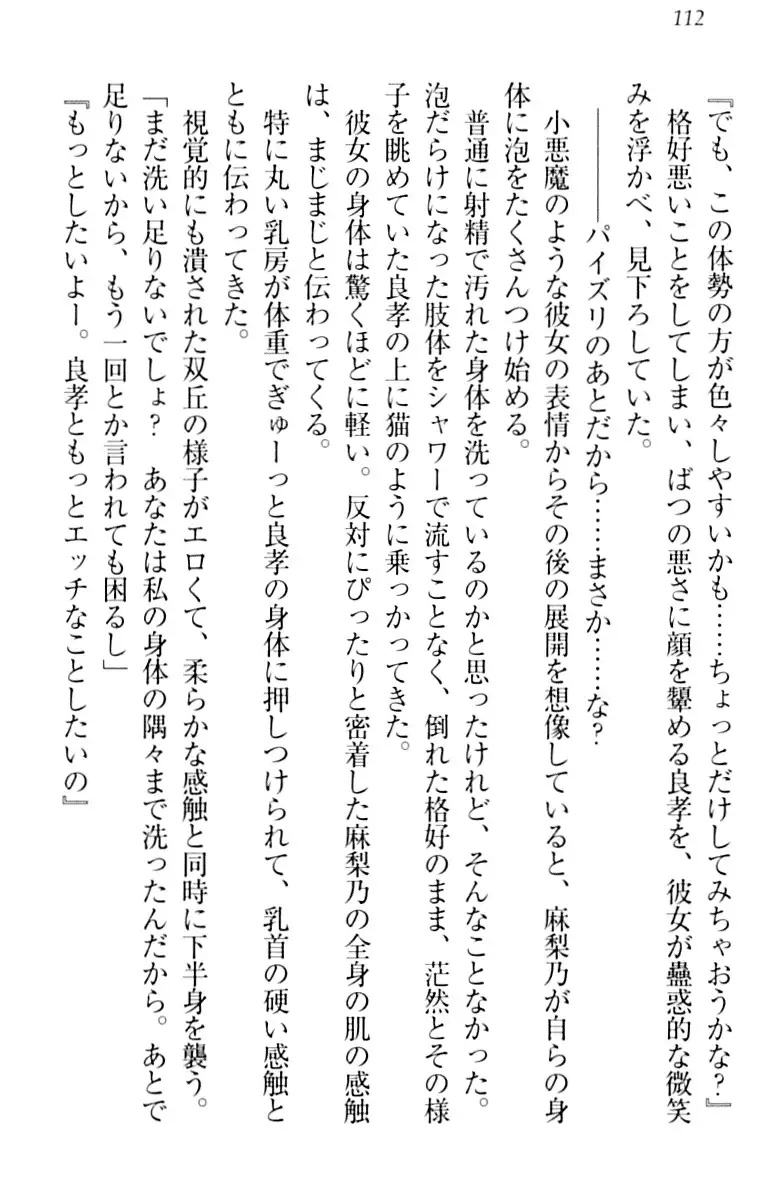 112
『でも、この体勢の方が色々しやすいかも……ちょっとだけしてみちゃおうかな？』
格好悪いことをしてしまい、ばつの悪さに顔を顰める良孝を、彼女が蠱惑的な微笑
みを浮かべ、見下ろしていた。
――――パイズリのあとだから……まさか……な？
小悪魔のような彼女の表情からその後の展開を想像していると、麻梨乃が自らの身
体に泡をたくさんつけ始める。
普通に射精で汚れた身体を洗っているのかと思ったけれど、そんなことなかった。
泡だらけになった肢体をシャワーで流すことなく、倒れた格好のまま、茫然とその様
子を眺めていた良孝の上に猫のように乗っかってきた。
彼女の身体は驚くほどに軽い。反対にぴったりと密着した麻梨乃の全身の肌の感触
は、まじまじと伝わってくる。
特に丸い乳房が体重でぎゅーっと良孝の身体に押しつけられて、乳首の硬い感触と
ともに伝わってきた。
視覚的にも潰された双丘の様子がエロくて、柔らかな感触と同時に下半身を襲う。
「まだ洗い足りないでしょ？　あなたは私の身体の隅々まで洗ったんだから。あとで
足りないから、もう一回とか言われても困るし」
『もっとしたいよー。良孝ともっとエッチなことしたいの』